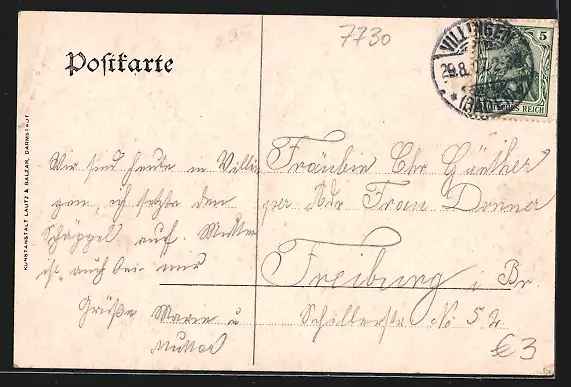 7730
VILLINGEN
29.8.
(BADEN)
5
DEUTSCHES REICH
Postkarte
KUNSTANSTALT LAUTZ & BALZAR, DARMSTADT
Wir sind heute in Villin
gen, ich setzte den
Schäppel auf. Mutter
ist auch bei mir
Grüße Marie u
Mutter
Fräulein Chr Günther
per Adr Frau Donner
Freiburg i Br.
Schillerstr No 52
€3